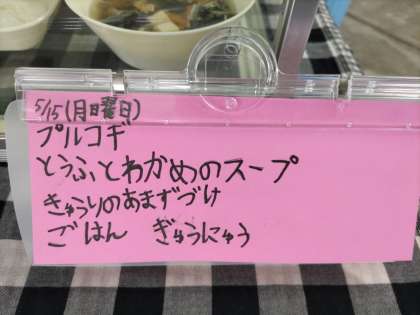 5/15(月曜日)
プルコギ
とうふとわかめのスープ
きゅうりのあまずづけ
ごはん ぎゅうにゅう